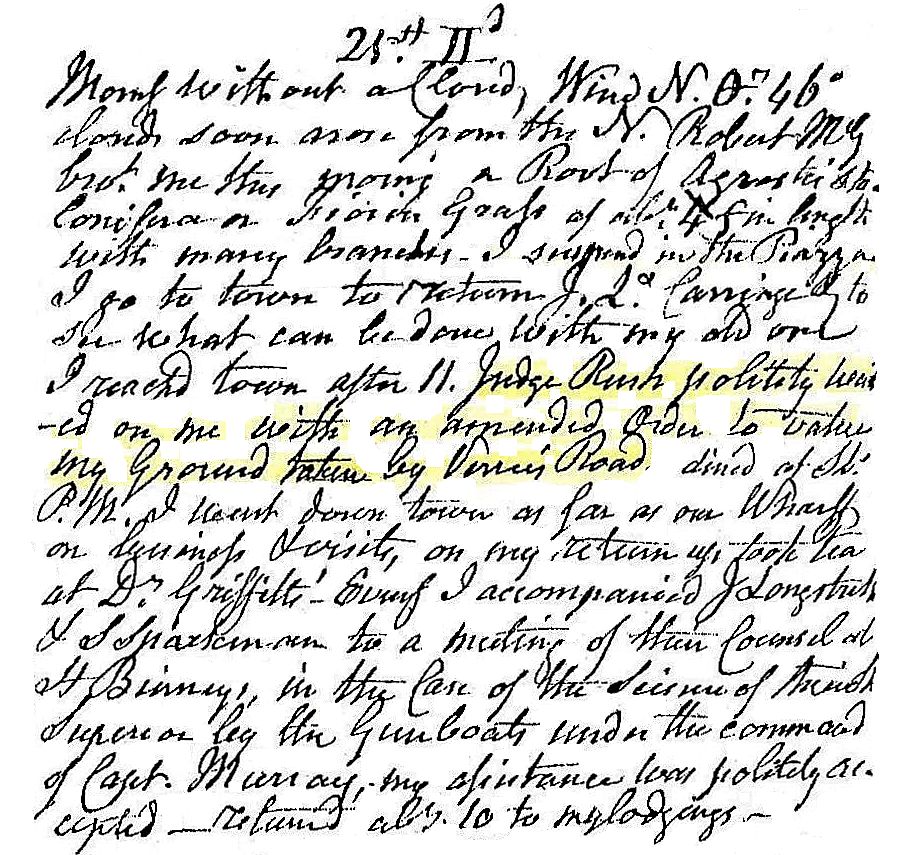 21st. IId
Morng without a Cloud, Wind N. 46°
clouds soon arose from the N. Robert McG
brot. me this morning a Root of Agrostis sto-
lonifera or Fiorin Grass of abt. 4 f in length
with many branches - I suspend in the Piazza
I go to town to return J. Ld. Carriage & to
see what can be done with my old one
I reachd town after 11. Judge Rush politely wait
-ed on me with an amended Order to value
my Ground taken by Road. dined at
P.M. I went down town as far as our Wharf
on business & visits, on my return up took tea
at Dr. Griffitts' - Eveng I accompanied J Longstreth
& S Sparkman to a meeting of their Counsel at
H Binneys, in the Case of the Seizure of their Sh
Superior by the Gunboats under the command
of Capt. Murray, - my assistance was politely ac-
cepted — returned abt. 10 to my lodgings. -